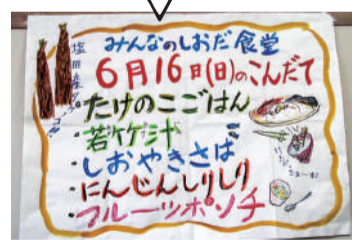 みんなのしおだ食堂
6月16日(日)のこんだて
・たけのこごはん
・若竹汁
・しおやきさば
・にんじんしりしり
・フルーツポンチ